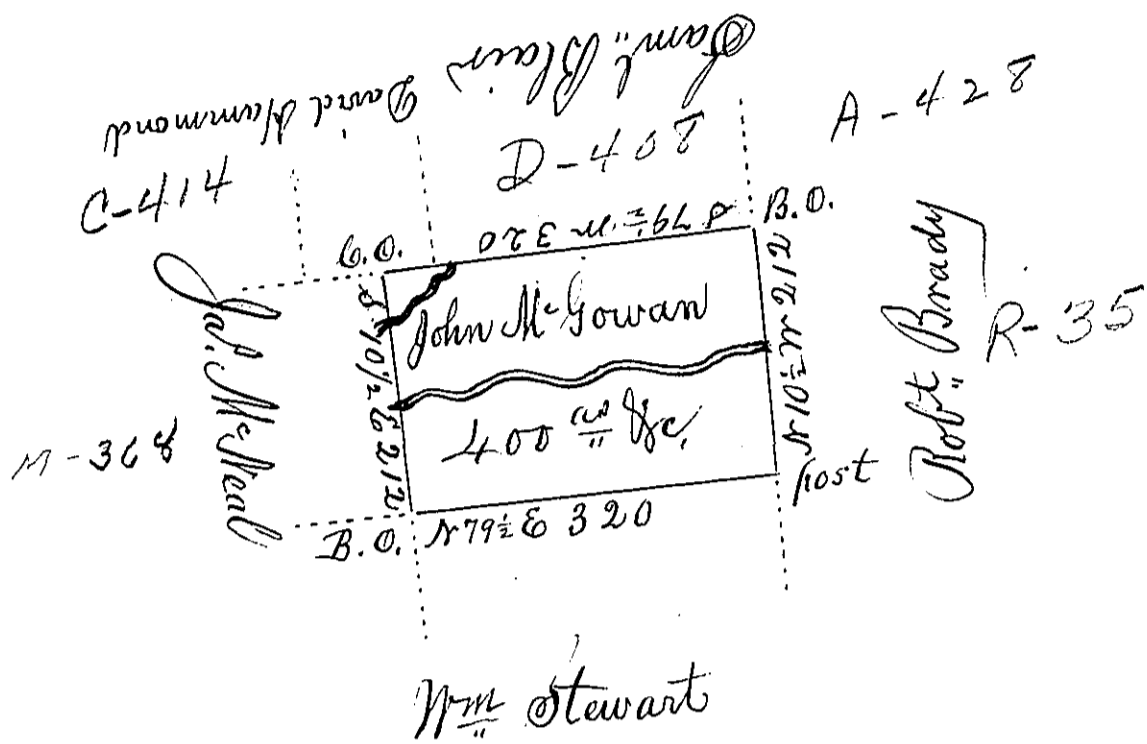 Saml. Blair
David Hammond
A-428
D-408
C-414
S 79½ W 320
B.O.
C.O.
Ja. McNeal
S 10½ E 212
John McGowan
N 10½ W 212
Robt. Brady
R-35
400 as &c.
post
B.O. N 79½ E 320
Wm Stewart